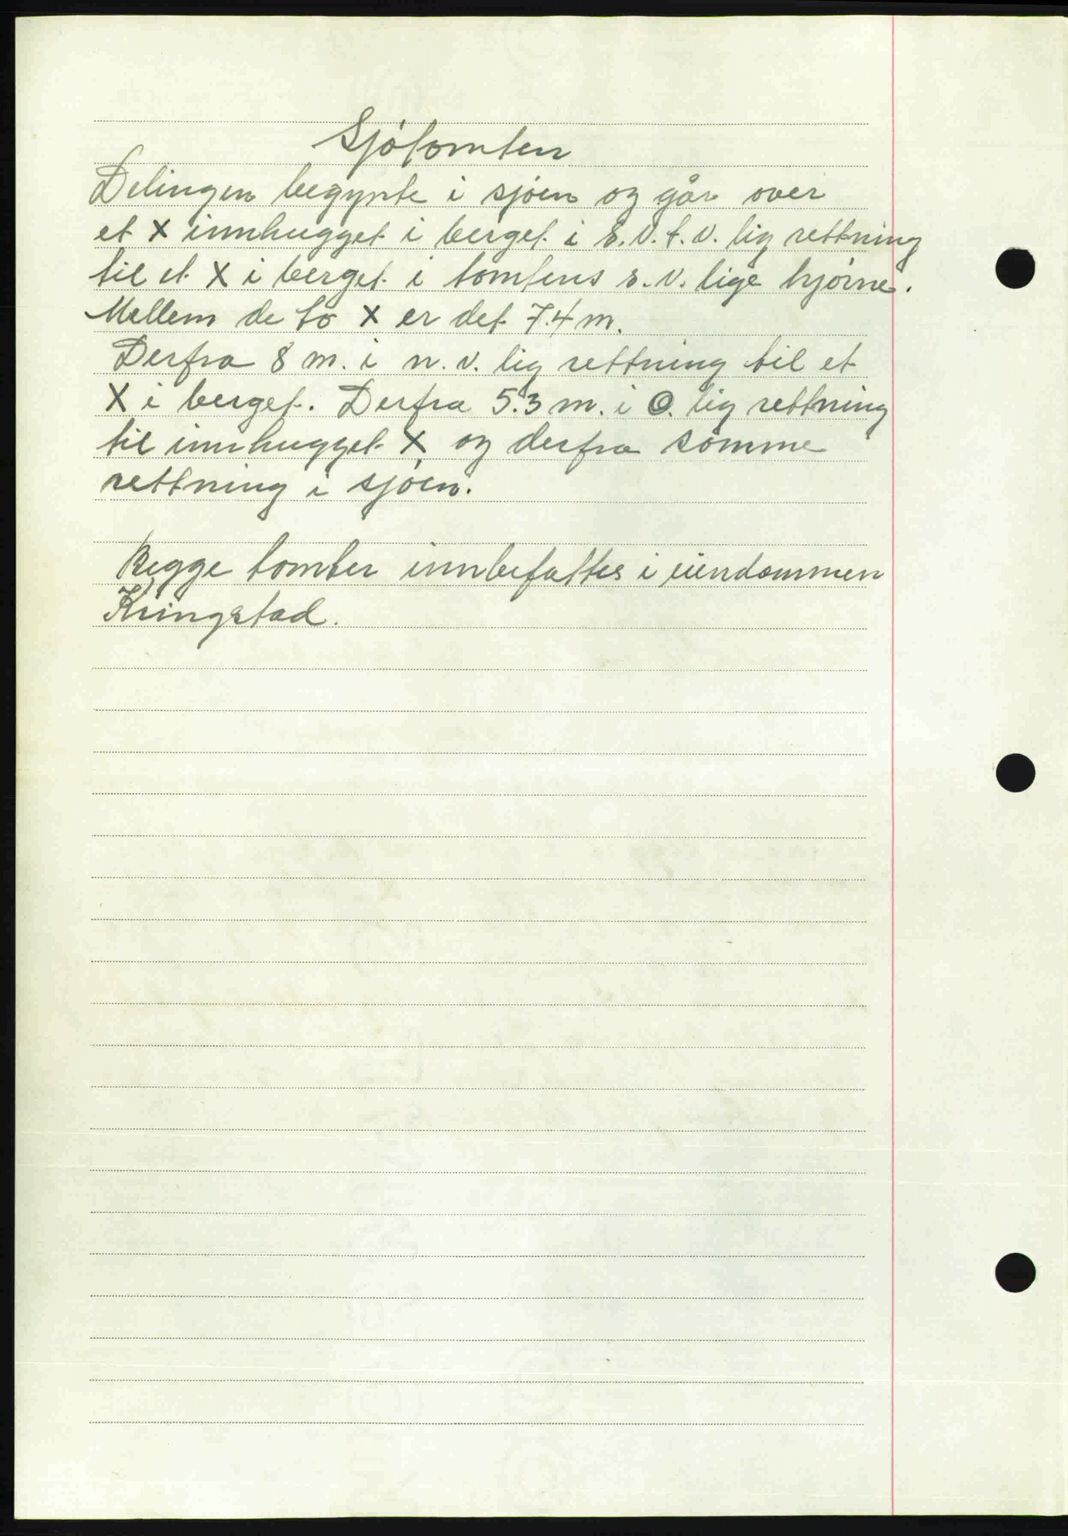 Sjötomten
Delingen begynte i sjöen og går over
et X innhugget i berget i S.V.t.V. lig rettning
til et X i berget i tomtens s.v. lige hjörne.
Mellem de to X er det 7.4 m.
Derfra 8 m. i n.v. lig rettning til et
X i berget. Derfra 5.3 m. i O. lig rettning
til innhugget X og derfra somme
rettning i sjöen.
Begge tomter innbefattes i eiendommen
Kringstad.